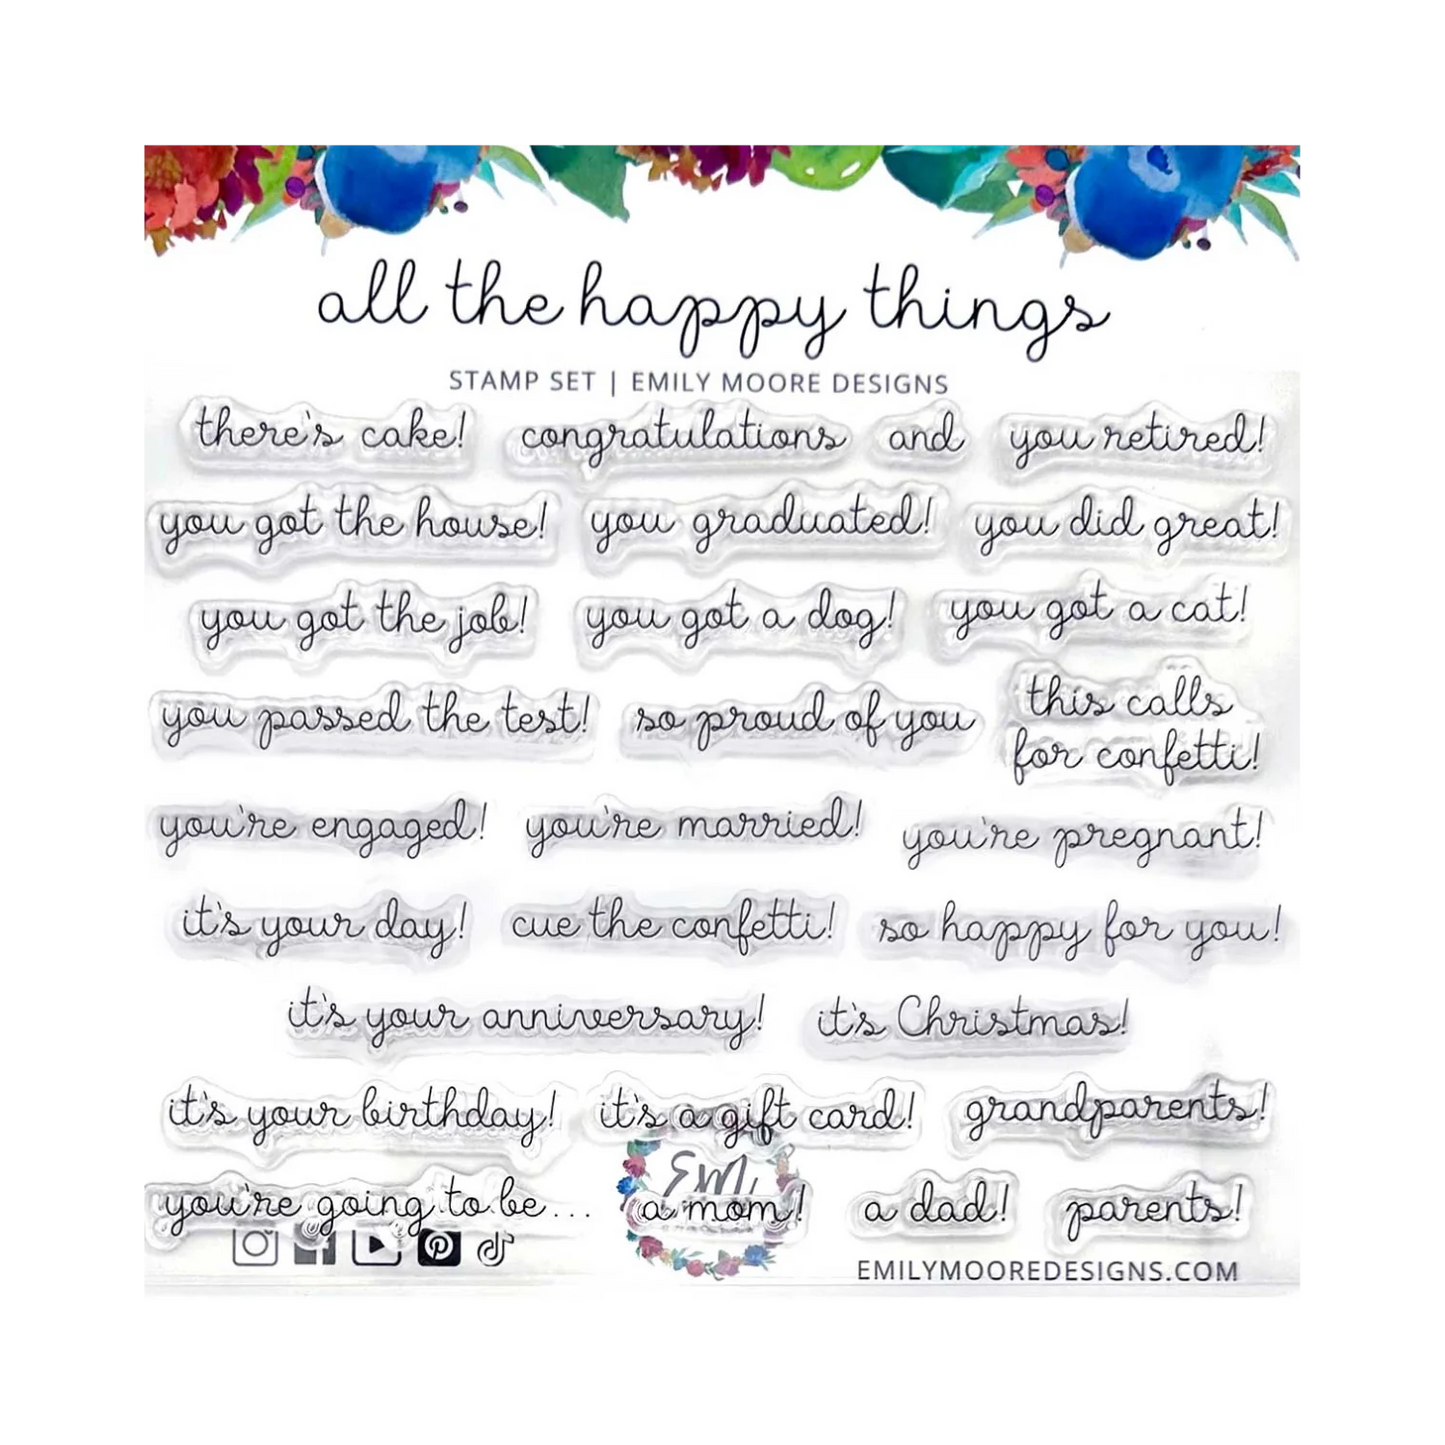 all the happy things
STAMP SET | EMILY MOORE DESIGNS
there's cake! congratulations and you retired!
you got the house! you graduated! you did great!
you got the job! you got a dog! you got a cat!
you passed the test! so proud of you this calls
for confetti!
you're engaged! you're married! you're pregnant!
it's your day! cue the confetti! so happy for you!
it's your anniversary! it's Christmas!
it's your birthday! it's a gift card! grandparents!
EM
you're going to be... a mom! a dad! parents!
EMILYMOOREDESIGNS.COM